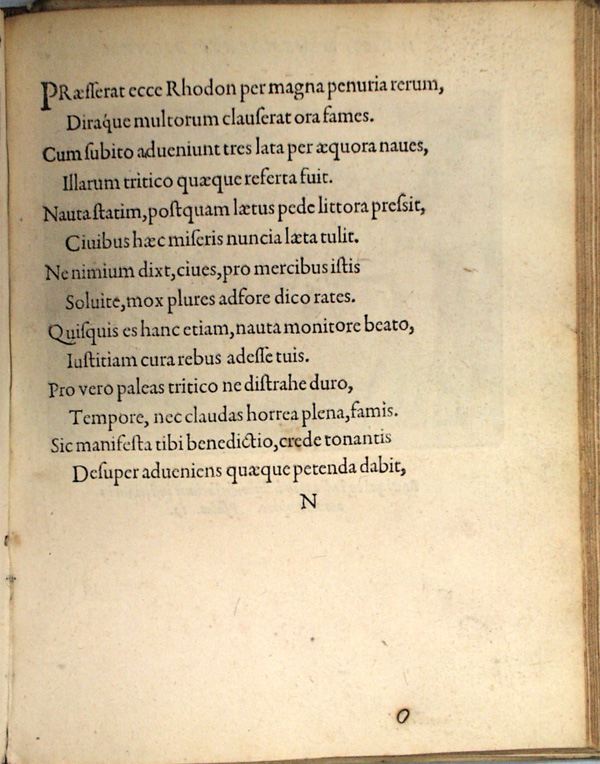 PRæſſerat ecce Rhodon per magna penuria rerum,
Diraq́ue multorum clauſerat ora fames.
Cum ſubito adueniunt tres lata per æquora naues,
Illarum tritico quæque referta fuit.
Nauta ſtatim, poſtquam lætus pede littora preſſit,
Ciuibus hæc miſeris nuncia læta tulit.
Ne nimium dixt, ciues, pro mercibus iſtis
Soluite, mox plures adfore dico rates.
Quiſquis es hanc etiam, nauta monitore beato,
Iuſtitiam cura rebus adeſſe tuis.
Pro vero paleas tritico ne diſtrahe duro,
Tempore, nec claudas horrea plena, famis.
Sic manifeſta tibi benedictio, crede tonantis
Deſuper adueniens quæque petenda dabit,
N
O